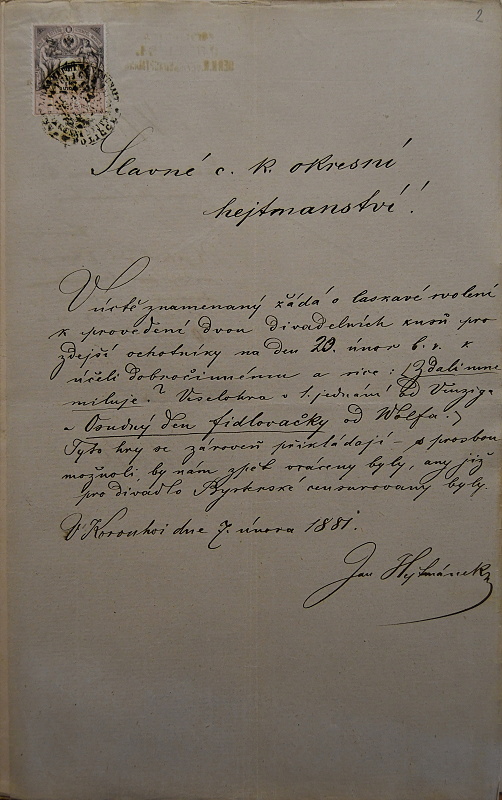 2
Slavné c. k. okresní
hejtmanství!
V úctě znamenaný žádá o laskavé svolení
k provedení dvou divadelních kusů pro
zdejší ochotníky na den 20. únor b. r. k
účeli dobročinnému a sice: (Zdali mne
miluje? Veselohra v 1. jednání od
a Osudný den fidlovačky od Wolfa.)
Tyto hry se zároveň přikládají – s prosbou
možnoli, by nám zpět vráceny byly, any již
pro divadlo Bystrské censurovany byly.
V Korouhvi dne 7. února 1881.
Jan Hejtmánek